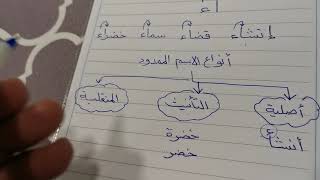 اء
إنشاء قضاء سماء خضراء
أنواع الاسم الممدود
أصلية التأنيث المنقلبة
ع
أنشأ خضرة
خضر